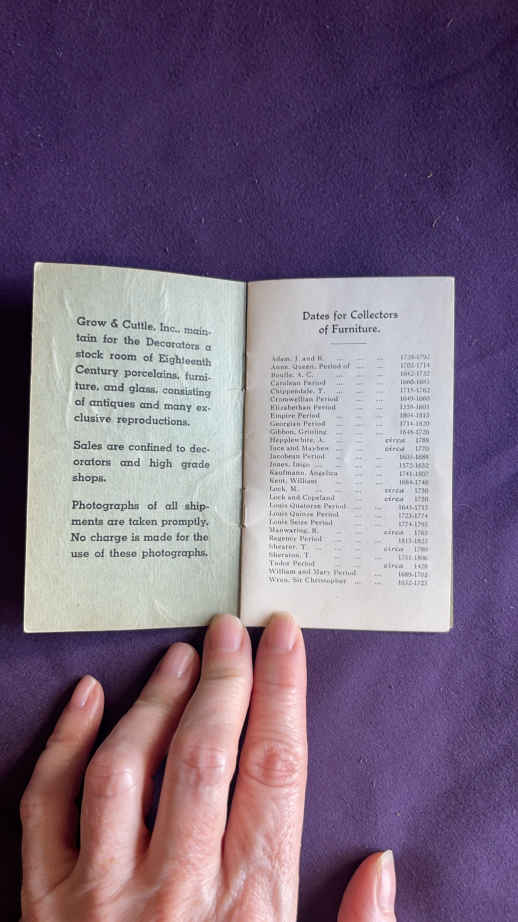 Grow & Cuttle, Inc., main-
tain for the Decorators a
stock room of Eighteenth
Century porcelains, furni-
ture, and glass, consisting
of antiques and many ex-
clusive reproductions.
Sales are confined to dec-
orators and high grade
shops.
Photographs of all ship-
ments are taken promptly.
No charge is made for the
use of these photographs.
Dates for Collectors
of Furniture.
Adam, J. and R. ... ... ... 1728-1792
Anne, Queen, Period of ... ... 1702-1714
Boulle, A. C. ... ... ... 1642-1732
Carolean Period ... ... 1660-1685
Chippendale, T. ... ... ...
Cromwellian Period ... ... 1649-1660
Elizabethan Period ... ... 1558-1603
Empire Period ... ... ... 1804-1815
Georgian Period ... ... 1714-1820
Gibbon, Grinling ... ... 1648-1726
Hepplewhite, A. ... ... circa 1788
Ince and Mayhew ... ... circa 1770
Jacobean Period ... ... 1603-1688
Jones, Inigo ... ... ... 1572-1652
Kaufmann, Angelica ... ... 1741-1807
Kent, William ... ... 1684-1748
Lock, M. ... ... circa
Lock and Copeland ... circa
Louis Quatorze Period ... ... 1643-1715
Louis Quinze Period ... ...
Louis Seize Period ... ...
Manwaring, R. ... ... circa
Regency Period ... ...
Shearer, T. ... ... circa
Sheraton, T. ... ... 1751-1806
Tudor Period ... ... circa
William and Mary Period ... 1689-1702
Wren, Sir Christopher ... ... 1632-1723